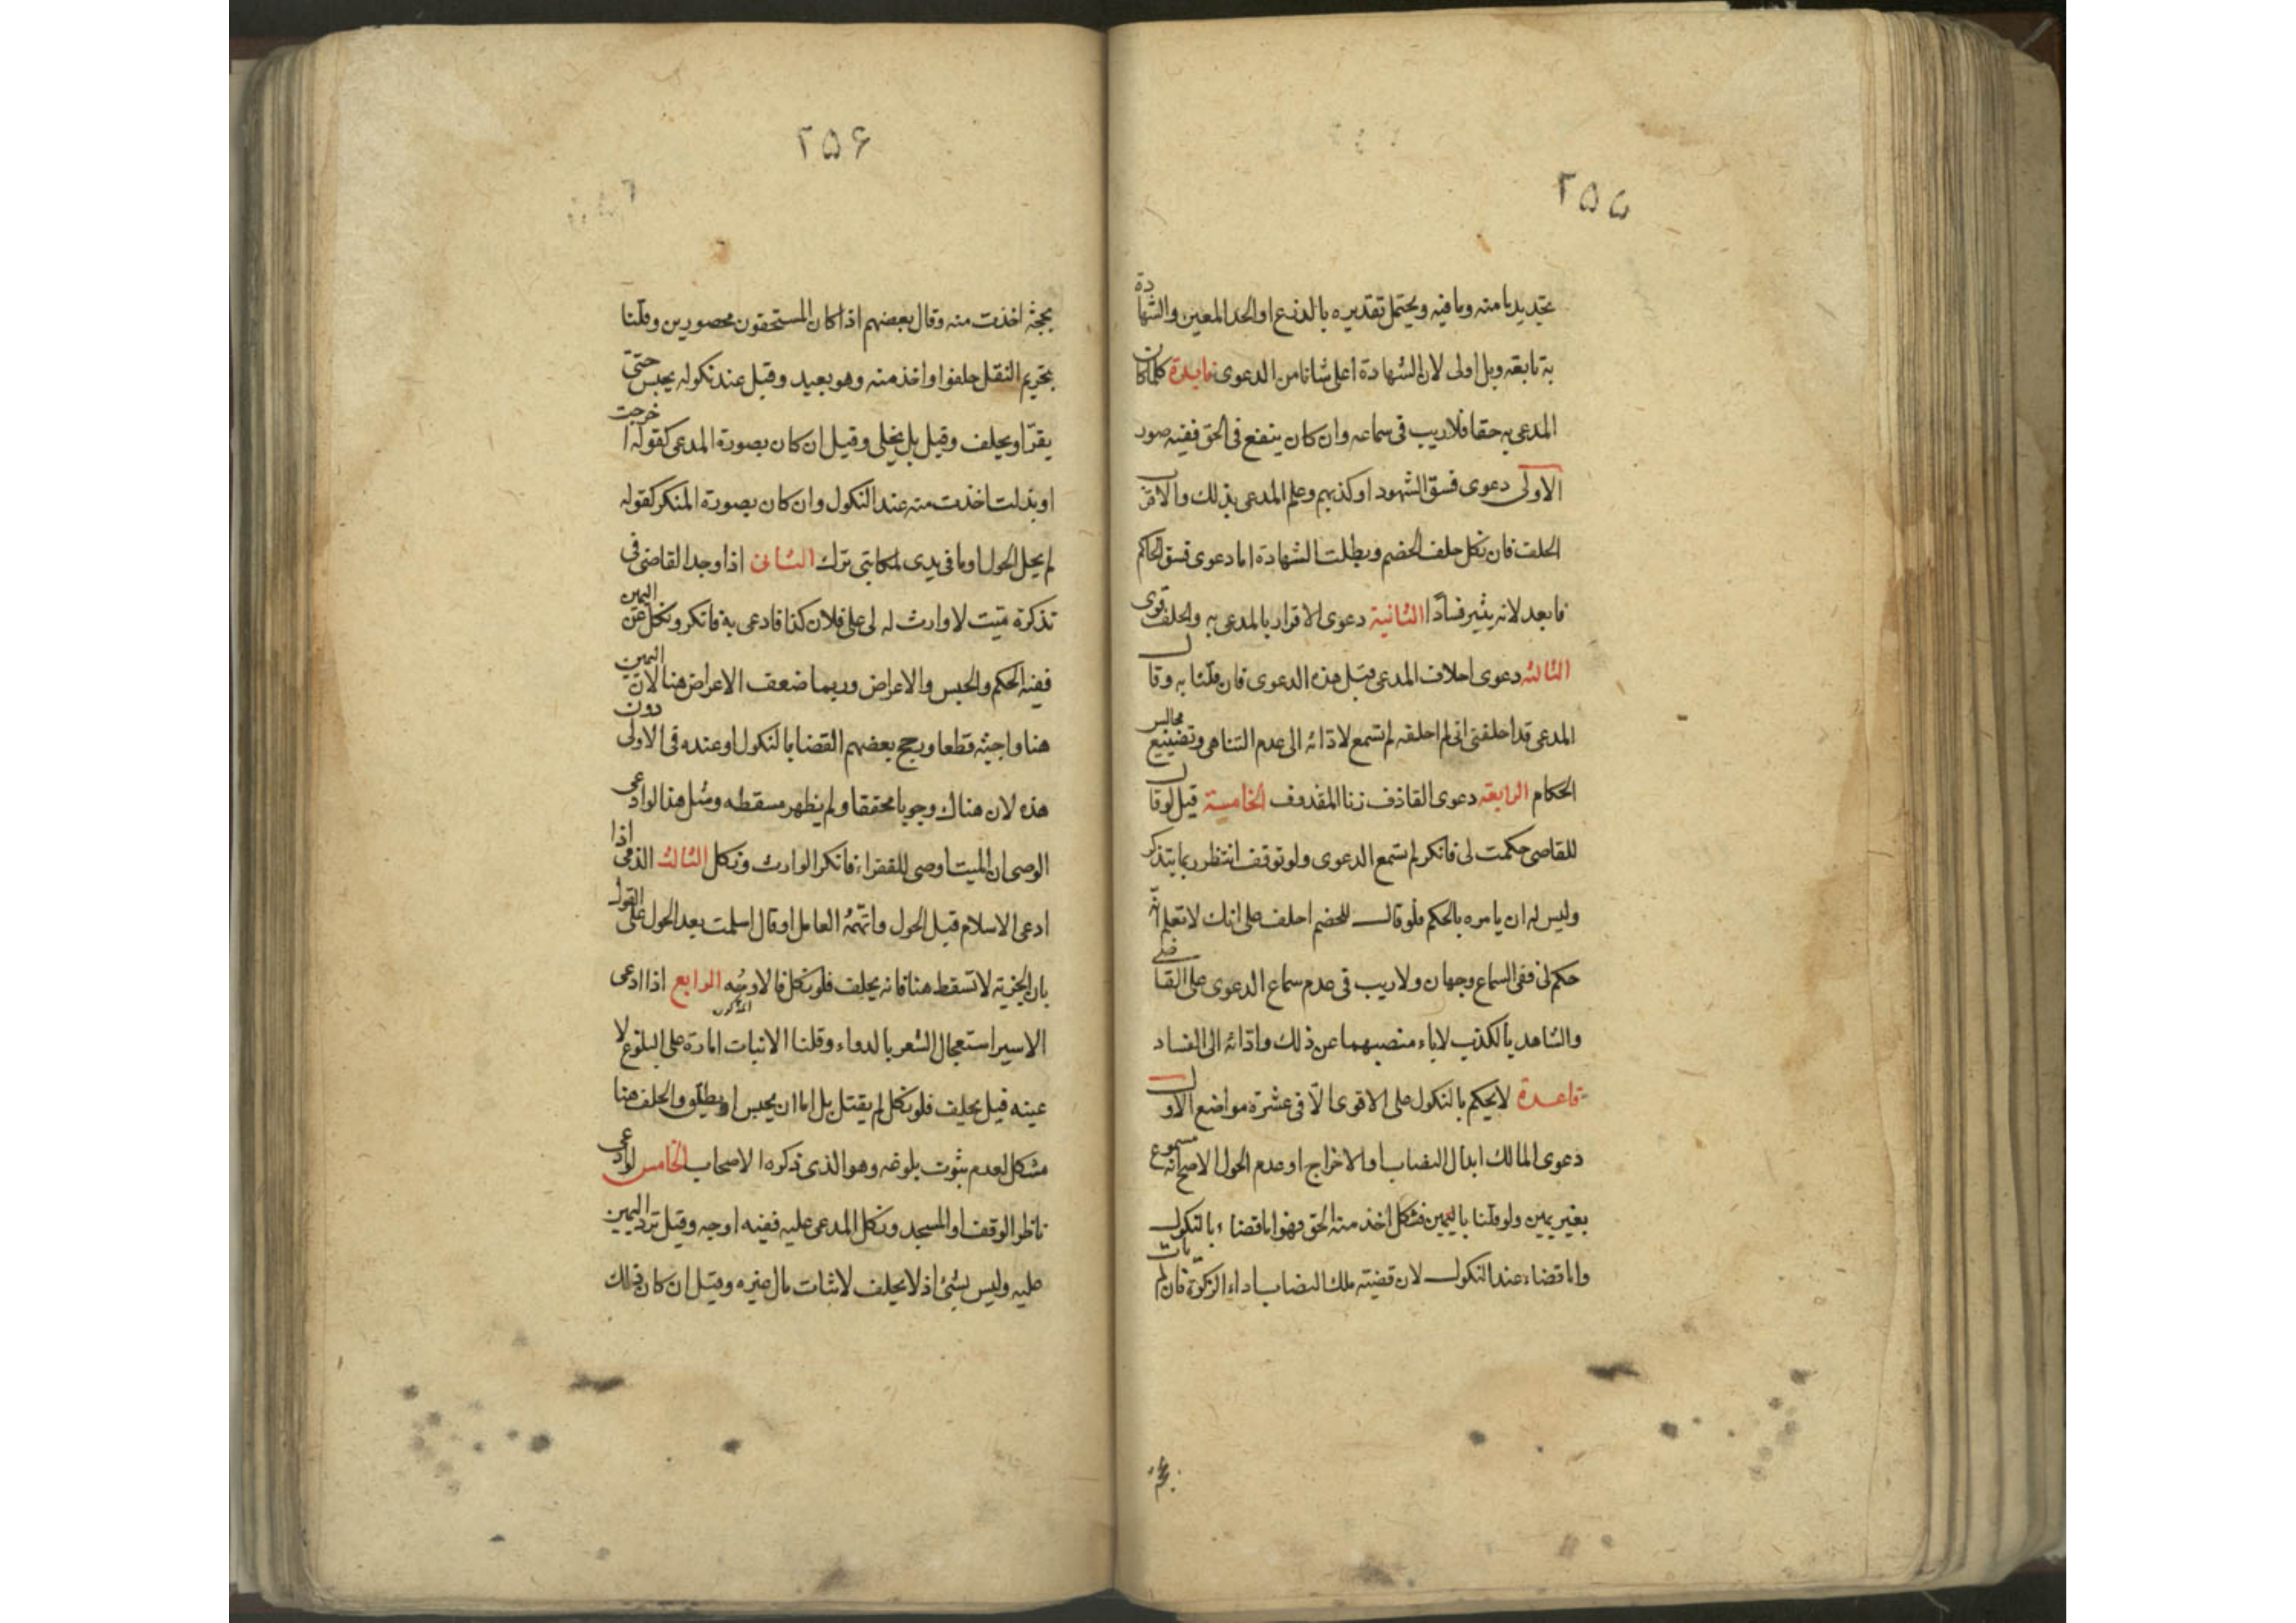 ۲۵۵
بتجديد ما منه وما فيه ويحتمل تقديره بالدفع او الحد المعين والشهادة
به تابعه وبل اولى لان الشهادة اعلى شانا من الدعوى فايدة كلما كان
المدعى به حقا فلا ريب فى سماعه وان كان ينفع فى الحق ففيه صور
الاولى دعوى فسق الشهود او كذبهم وعلم المدعى بذلك والاقرب
الحلف فان نكل حلف الخصم وبطلت الشهادة اما دعوى فسق الحاكم
فابعد لانه يثير فسادا الثانية دعوى الاقرار بالمدعى به والحلف قوى
الثالثه دعوى احلاف المدعى قبل هذه الدعوى فان قلنا به وقال
المدعى قد احلفنى انى لم احلفه لم تسمع لاداثه الى عدم التناهى وتضييع مجالس
الحكام الرابعه دعوى القاذف زنا المقذوف الخامسة قيل لو قال
للقاضى حكمت لى فانكر لم تسمع الدعوى ولو توقف انتظر ربما يتذكر
وليس له ان يامره بالحكم فلو قال للخصم احلف على انك لا تعلم انه
حكم لى ففى السماع وجهان ولا ريب فى عدم سماع الدعوى على القاضى
والشاهد بالكذب لاباء منصبهما عن ذلك واداثه الى الفساد
قاعدة لا يحكم بالنكول على الاقوى الا فى عشرة مواضع الاول
دعوى المالك ابدال النصاب او الاخراج او عدم الحول الاصح انه مسموع
بغير يمين ولو قلنا باليمين فنكل اخذ منه الحق فهو اما قضاء بالنكول
واما قضاء عند النكول لان قضيته ملك النصاب اداء الزكوة فان لم يات
۲۵۶
بحجة اخذت منه وقال بعضهم اذا كان المستحقون محصورين وقلنا
بتحريم النقل حلفوا واخذ منه وهو بعيد وقيل عند نكوله يحبس حتى
يقر او يحلف وقيل بل يخلى وقيل ان كان بصورة المدعى كقوله اخرجت
او بذلت اخذت منه عند النكول وان كان بصورة المنكر كقوله
لم يحل الحول او ما فى يدى لمكاتبى ترك الثانى اذا وجد القاضى فى
تذكرة ميت لا وارث له لى على فلان كذا فادعى به فانكر ونكل عن اليمين
ففيه الحكم والحبس والاعراض وربما ضعف الاعراض هنا لان اليمين
هنا واجبة قطعا ورجح بعضهم القضا بالنكول او عنده فى الاولى دون
هذه لان هناك وجوبا محققا ولم يظهر مسقطه ومثل هذا لو ادعى
الوصى ان الميت اوصى للفقراء فانكر الوارث ونكل الثالث الذمى اذا
ادعى الاسلام قبل الحول واتهمه العامل او قال اسلمت بعد الحول على القول
بان الجزية لا تسقط هنا فانه يحلف فلو نكل فالاوجه الرابع اذا ادعى
الاسير استعجال الشعر بالدواء وقلنا الانبات امارة على البلوغ لا
عينه قيل يحلف فلو نكل لم يقتل بل اما ان يحبس او يطلق والحلف هنا
مشكل لعدم ثبوت بلوغه وهو الذى ذكره الاصحاب الخامس لو ادعى
ناظر الوقف او المسجد ونكل المدعى عليه ففيه اوجه وقيل ترد اليمين
عليه وليس بشئ اذ لا يحلف لاثبات مال غيره وقيل ان كان ذلك